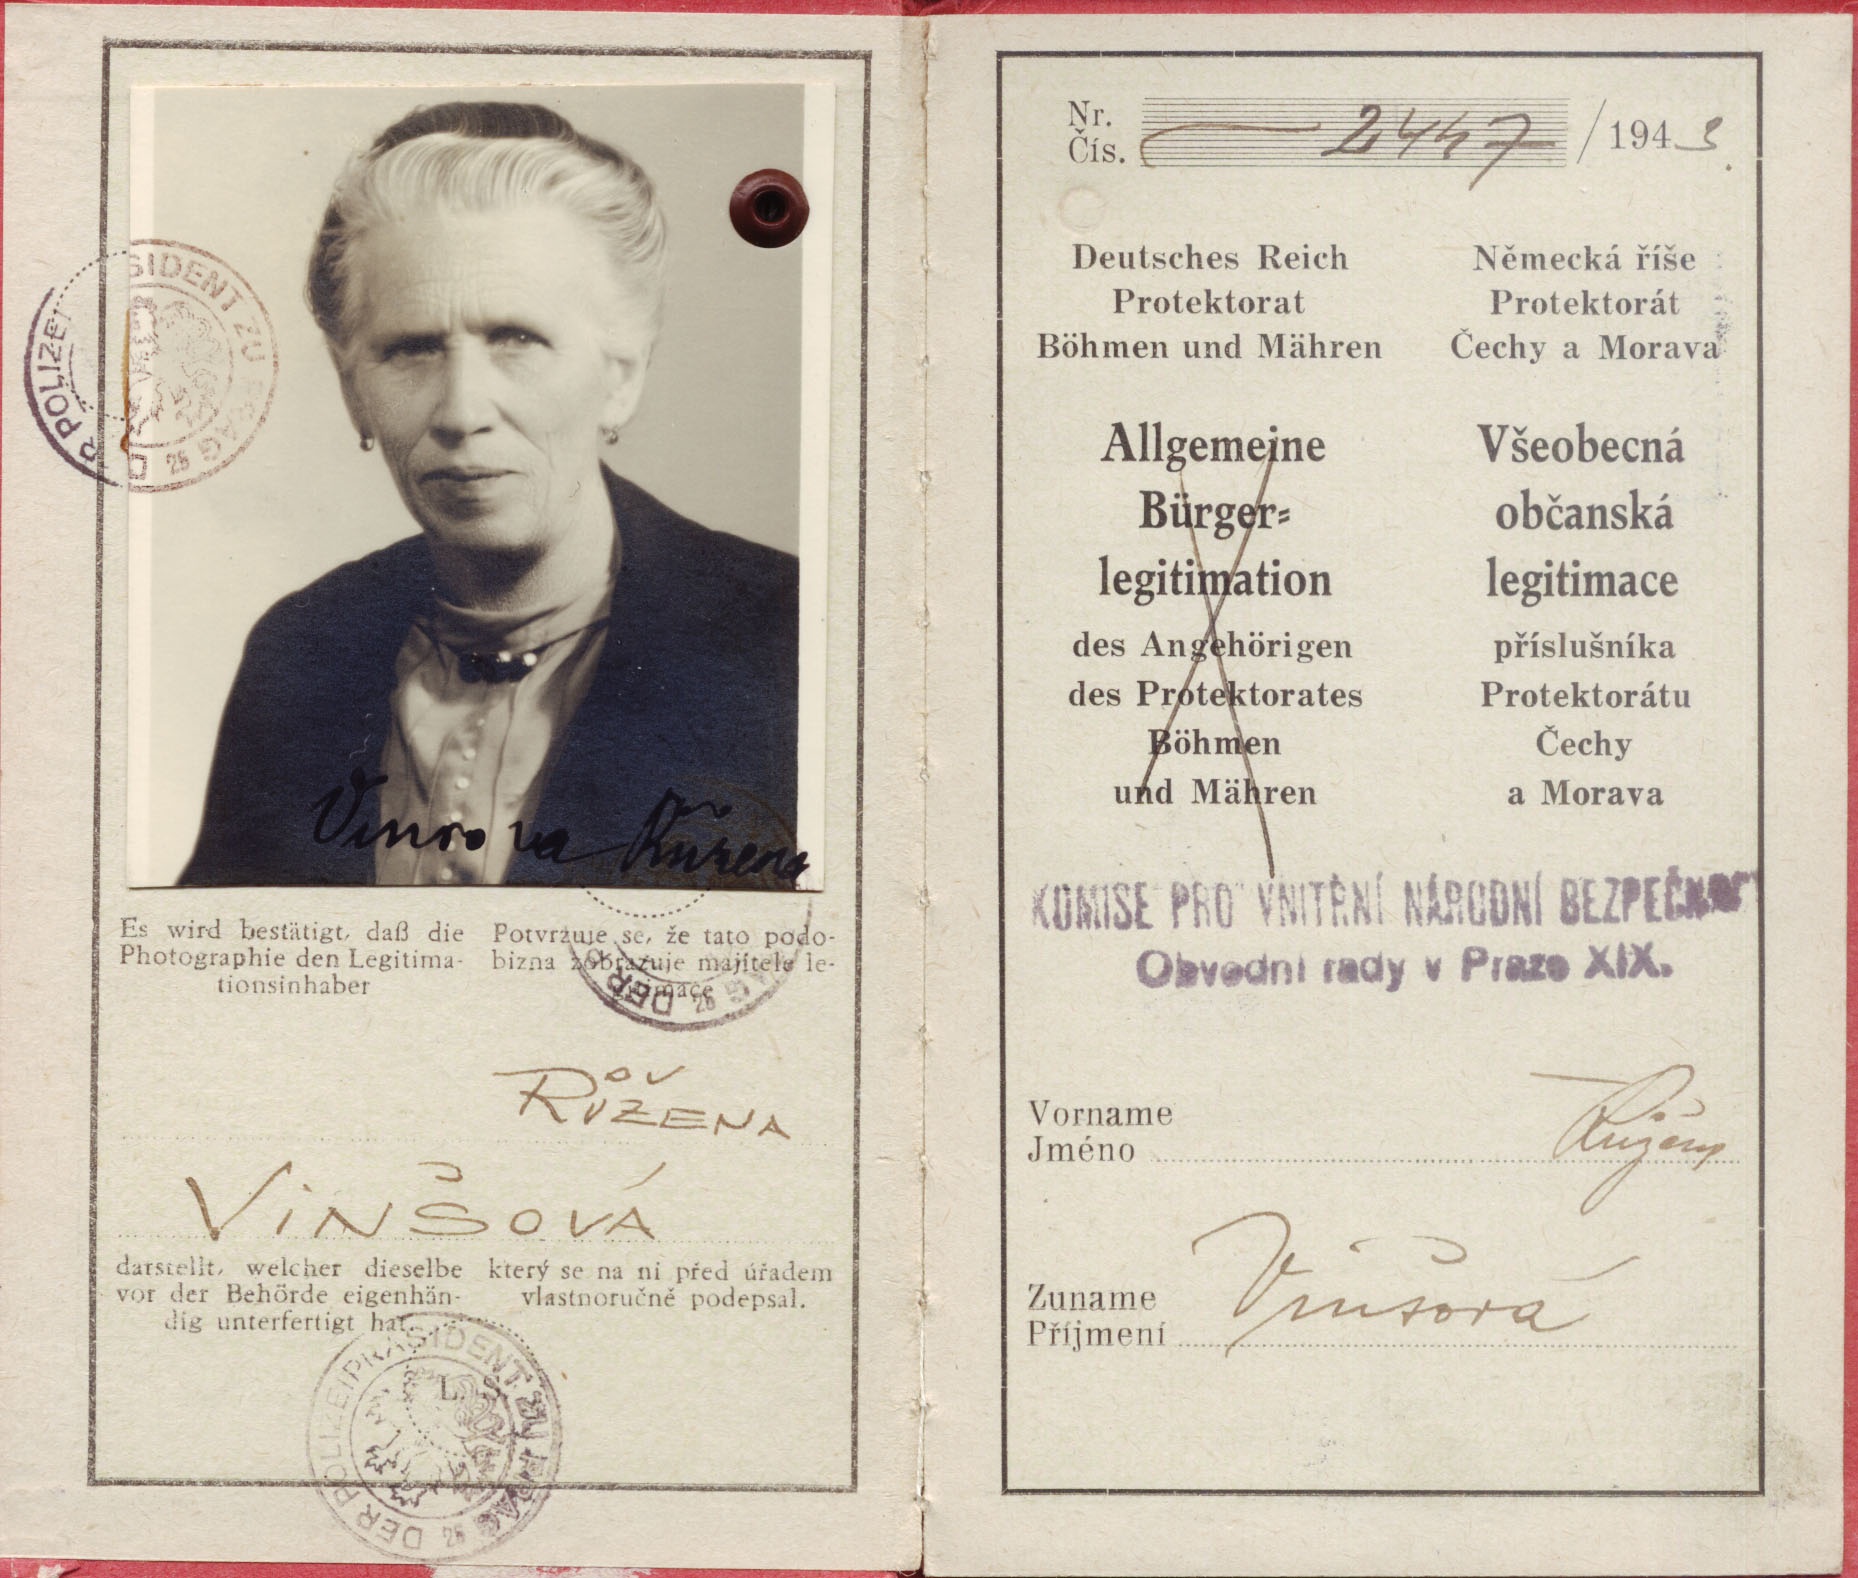 DER POLIZEI
SIDENT ZU PRAG 26
Vinšova Růžena
Es wird bestätigt, daß die
Photographie den Legitima-
tionsinhaber
Potvrzuje se, že tato podo-
bizna zobrazuje majitele le-
gitimace
DER
26
RŮŽENA
VINŠOVÁ
darstellt, welcher dieselbe
vor der Behörde eigenhän-
dig unterfertigt hat.
který se na ni před úřadem
vlastnoručně podepsal.
L. S.
DER POLIZEIPRÄSIDENT ZU PRAG 26
Nr.
Čís. 2447 / 1943.
Deutsches Reich
Protektorat
Böhmen und Mähren
Německá říše
Protektorát
Čechy a Morava
Allgemeine
Bürger=
legitimation
des Angehörigen
des Protektorates
Böhmen
und Mähren
Všeobecná
občanská
legitimace
příslušníka
Protektorátu
Čechy
a Morava
KOMISE PRO VNITŘNÍ NÁRODNÍ BEZPEČNOST
Obvodní rady v Praze XIX.
Vorname
Jméno Růžena
Zuname
Příjmení Vinšová